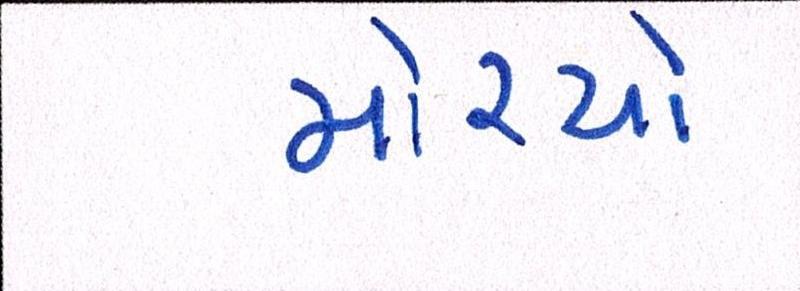 મોરચો